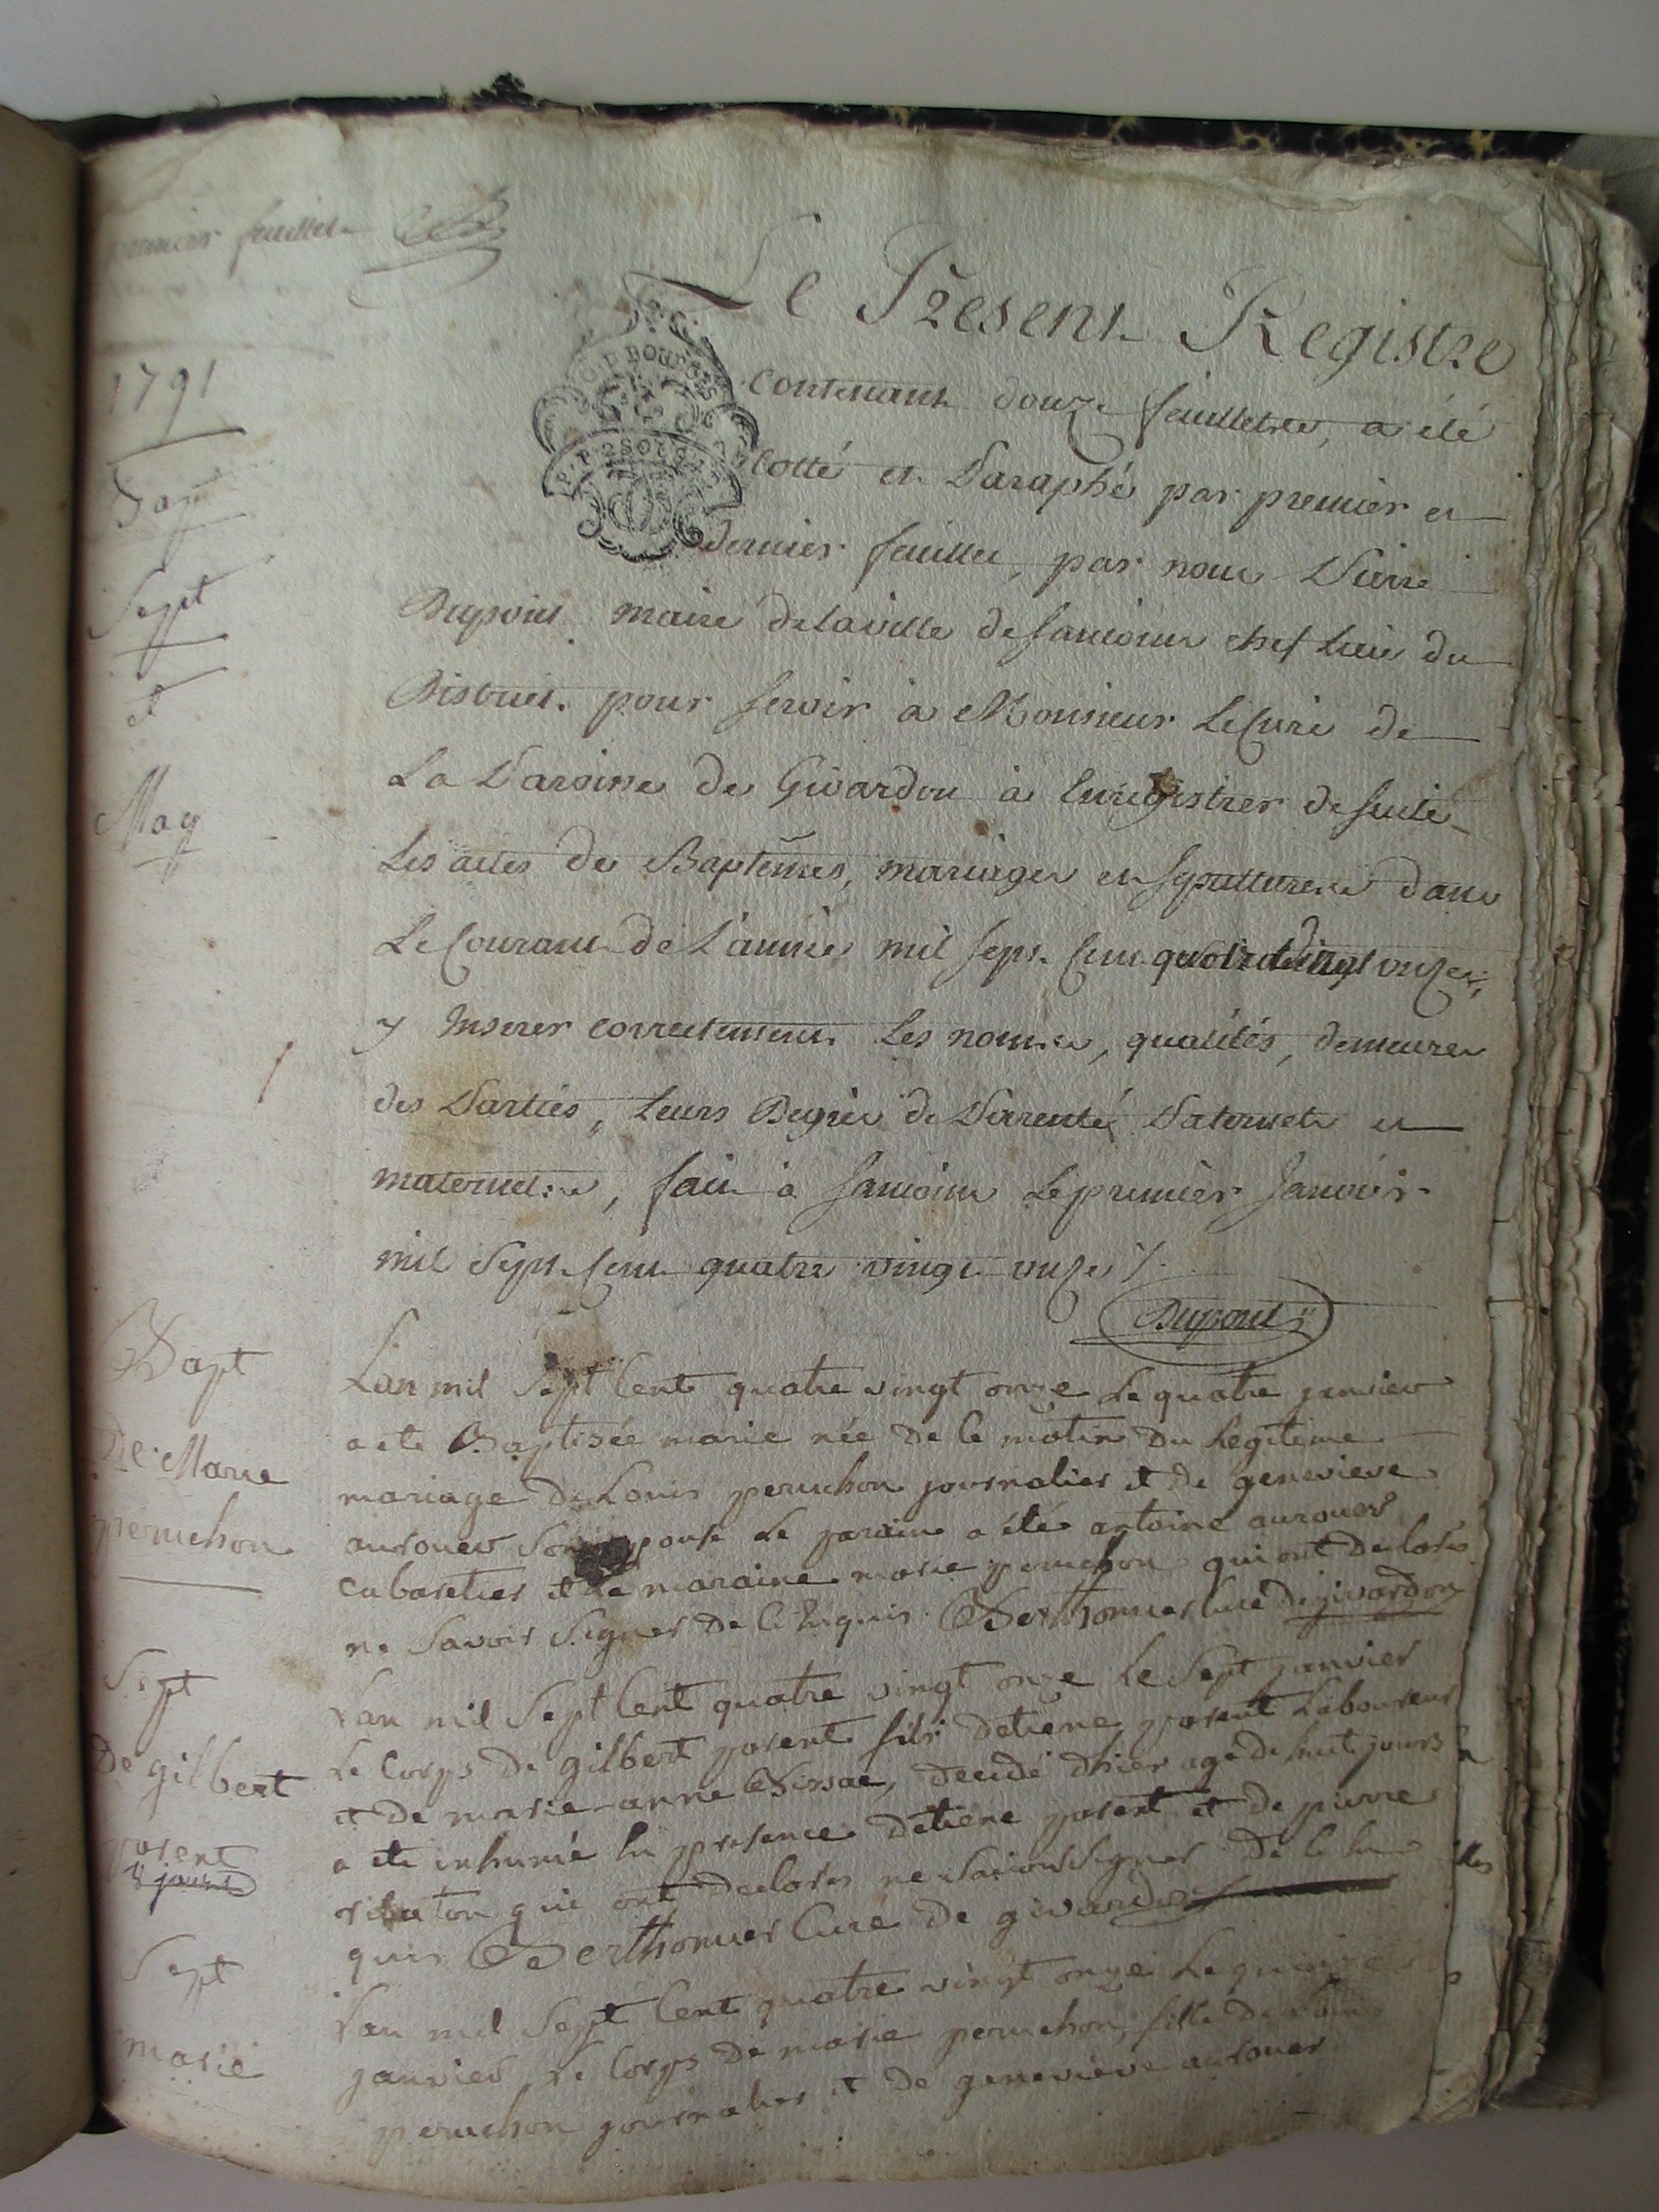 premier feuillet
1791
Bap
Sept
et
Mag
Le Present Registre
contenant douze feuillets, a été
Cotté et Paraphé par premier et
dernier feuillet, par nous Pierre
Dupuis maire de la ville de Sancoins chef Lieu du
District. pour servir à Monsieur Le Curé de
La Paroisse de Givardon à Enregistrer de suite
Les actes de Baptêmes, mariages et sepultures dans
Le Courant de L'année mil sept Cent quatre vingt onze,
y Inserer correctement Les noms, qualités, demeures
des Parties, Leurs Degrés de Parenté Paternels et
maternels, fait à Sancoins Le premier Janvier
mil Sept Cent quatre vingt onze /.
Bapt
De Marie
peruchon
Lan mil Sept Cent quatre vingt onze Le quatre janvier
a ete Baptisée marie née de ce matin du Legitime
mariage de Louis peruchon journalier et de genevieve
aurouer Son epouse Le parain a été antoine aurouer
cabaretier et La maraine marie peruchon qui ont declarés
ne Savoir Signer de ce Enquis Berthomier Curé de givardon
Sept
De gilbert
parent
8 jours
Lan mil Sept Cent quatre vingt onze Le Sept janvier
Le Corps de gilbert parent fils detiene parent Laboureur
et de marie anne Bissae, decedé dhier agé de huit jours
a ete inhumé En presence detiene parent et de pierre
qui ont declarés ne Savoir Signer de ce En
quis Berthomier Curé de givardon
Sept
marie
Lan mil Sept Cent quatre vingt onze Le quinze
janvier Le Corps de marie peruchon, fille de Louis
peruchon journalier et de genevieve aurouer